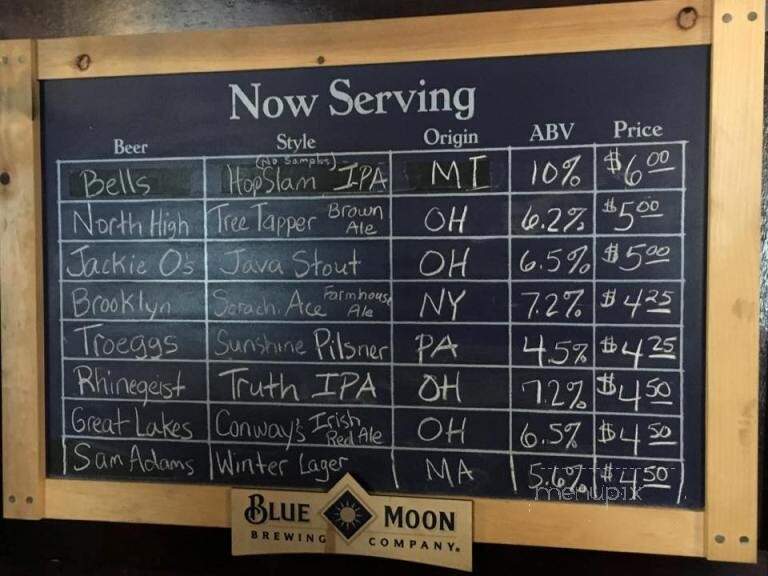 Now Serving
Beer Style Origin ABV Price
(No Samples)
Bells HopSlam IPA MI 10% $6.00
North High Tree Tapper Brown Ale OH 6.2% $5.00
Jackie O's Java Stout OH 6.5% $5.00
Brooklyn Sorachi Ace Farmhouse Ale NY 7.2% $4.25
Troeggs Sunshine Pilsner PA 4.5% $4.25
Rhinegeist Truth IPA OH 7.2% $4.50
Great Lakes Conway's Irish Red Ale OH 6.5% $4.50
Sam Adams Winter Lager MA 5.6% $4.50
menupix
BLUE MOON
BREWING COMPANY.